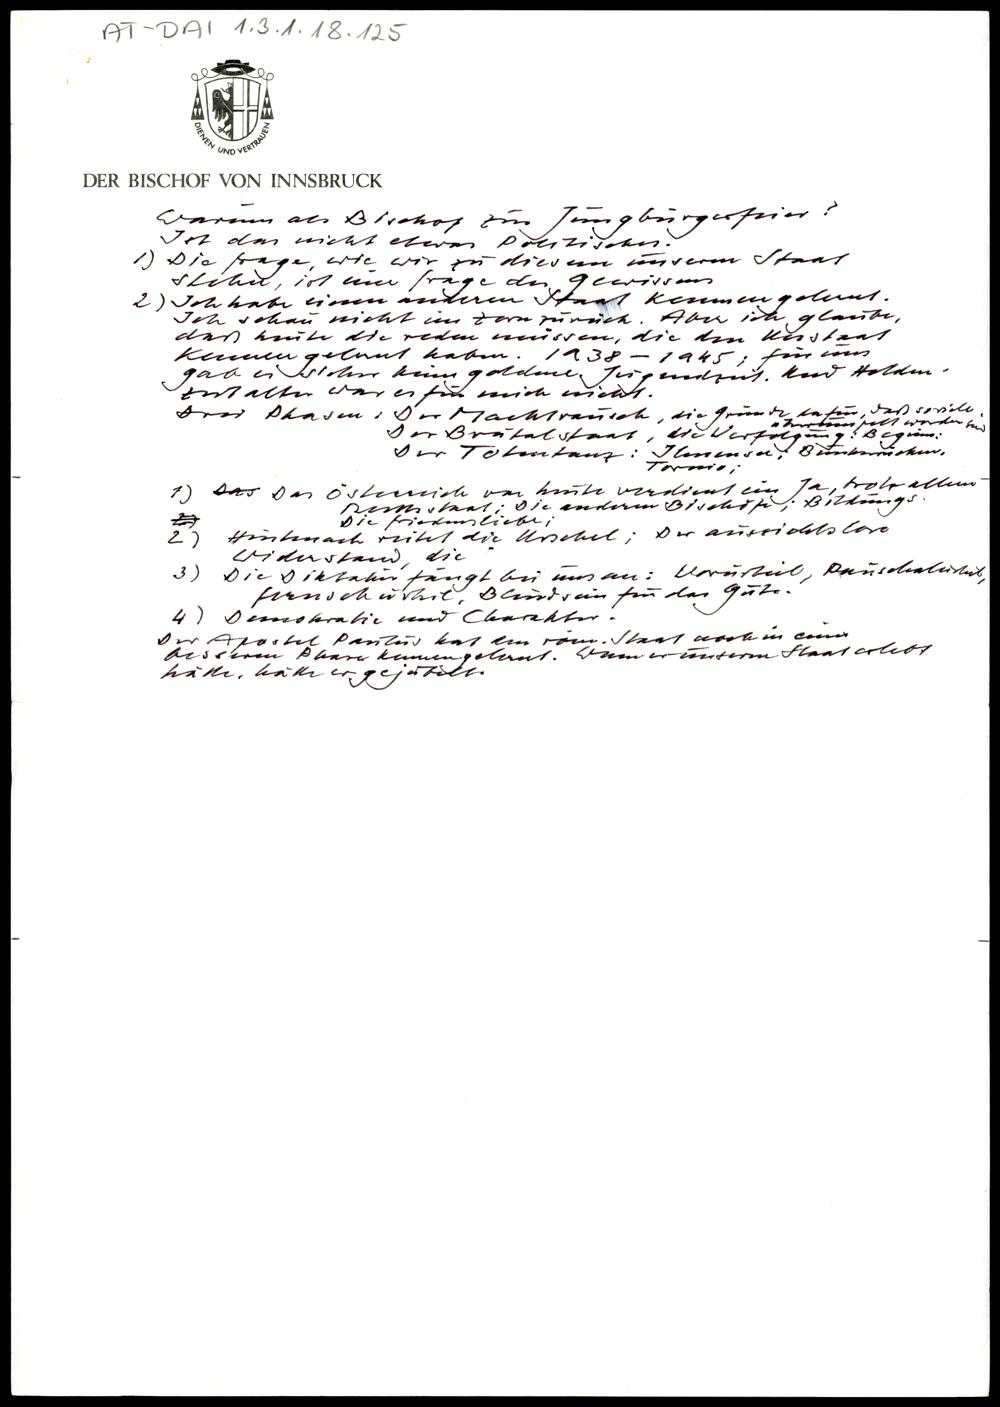 AT-DAI 1.3.1.18.125
DIENEN UND VERTRAUEN
DER BISCHOF VON INNSBRUCK
Warum als Bischof zur Jungbürgerfeier?
Ist das nicht etwas Politisches.
1) Die Frage, wie wir zu diesem unserem Staat
stehen, ist eine Frage des Gewissens
2) Ich habe einen anderen Staat kennengelernt.
Ich schau nicht im Zorn zurück. Aber ich glaube,
daß heute die reden müssen, die den Unstaat
kennen gelernt haben. 1938 – 1945; für uns
gab es sicher keine goldene Jugendzeit. Und Helden-
zeitalter war es für mich nicht.
Drei Phasen: Der Machtrausch, die Gründe dafür, daß so viele
überrumpelt worden sind
Der Brutalstaat, die Verfolgung: Beginn:
Der Totentanz: Ilmensee;
Tornio;
1) Das Das Österreich von heute verdient ein Ja, trotz allem
Rechtsstaat; Die anderen Bischöfe; Bildungs.
Die Friedensliebe;
2)
2) die ; Der aussichtslose
Widerstand, die "
3) Die Diktatur fängt bei uns an: Vorurteil, Pauschalurteil,
Fernsehurteil, Blindsein für das Gute.
4) Demokratie und Charakter.
Der Apostel Paulus hat den röm. Staat noch in einer
besseren Phase kennengelernt. Wenn er unseren Staat erlebt
hätte, hätte er gejubelt.